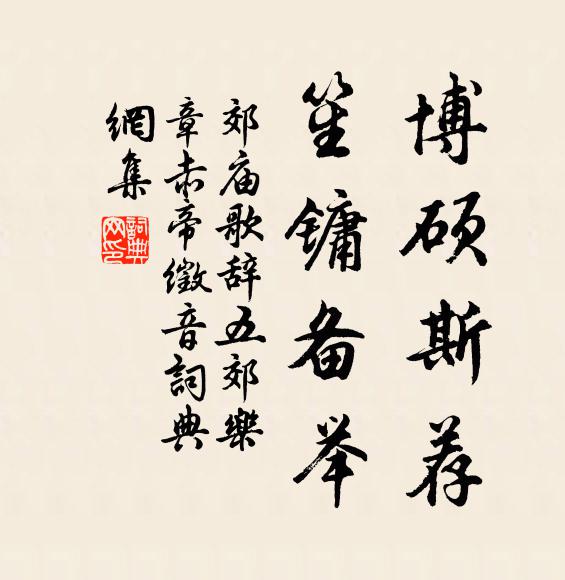 博硕斯荐
笙镛备举
郊庙歌辞五郊樂
章赤帝徵音詞典
網集
詞典網印